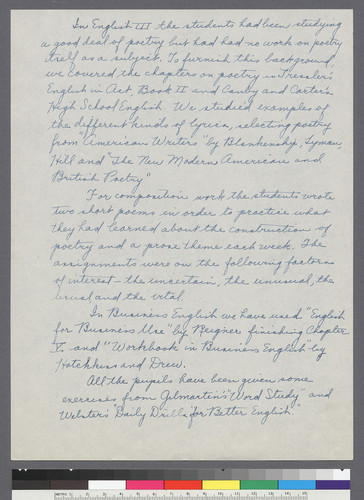 In English III the students had been studying
a good deal of poetry but had had no work on poetry
itself as a subject. To furnish this background,
we covered the chapters on poetry in Tressler's
English in Act, Book II and Canby and Carter's
High School English. We studied examples of
the different kinds of lyrics, selecting poetry
from "American Writers" by Blankenship, Lyman,
Hill and "The New Modern American and
British Poetry"
For composition work the students wrote
two short poems in order to practice what
they had learned about the construction of
poetry and a prose theme each week. The
assignments were on the following factors
of interest - the uncertain, the unusual, the
usual and the vital
In Business English we have used "English
for Business Use" by finishing Chapter
V. and "Workbook in Business English" by
Hotchkiss and Drew.
All the pupils have been given some
exercises from Gilmartin's "Word Study" and
Webster's "Daily Drills for Better English."